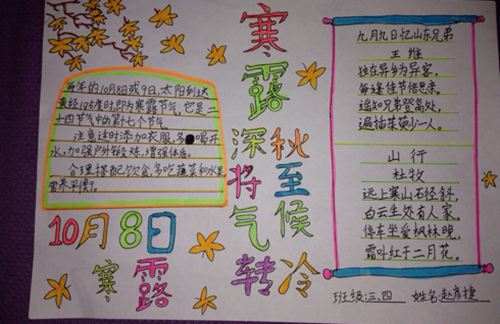 寒
露
深秋
将至
气候
转冷
每年的10月8日或9日,太阳到达
黄经195度时,即为寒露节气,它是二
十四节气中的第十七个节气
注意适时添加衣服,多喝开
水,加强户外锻炼,增强体质。
合理搭配饮食,多吃蔬菜和水果
营养平衡。
10月8日
寒露
九月九日忆山东兄弟
王维
独在异乡为异客,
每逢佳节倍思亲。
遥知兄弟登高处,
遍插茱萸少一人。
山行
杜牧
远上寒山石径斜,
白云生处有人家,
停车坐爱枫林晚,
霜叶红于二月花。
班级:三.四 姓名:赵彦捷